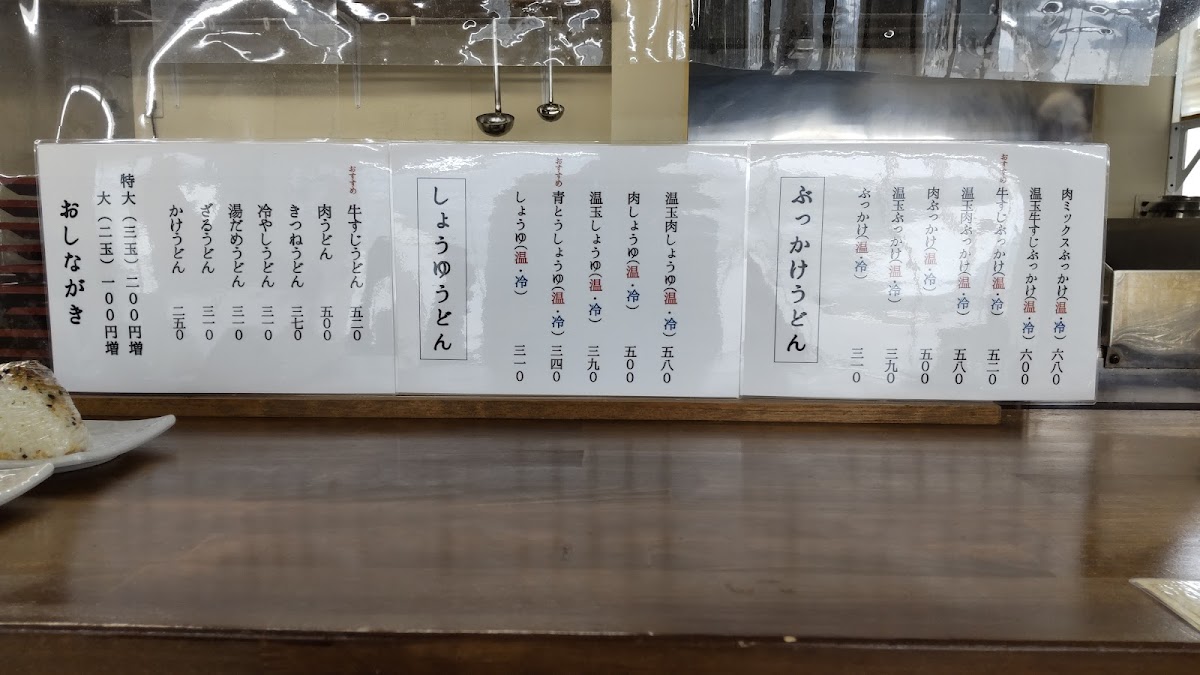 肉ミックスぶっかけ(温・冷) 六八〇
温玉牛すじぶっかけ(温・冷) 六〇〇
おすすめ
牛すじぶっかけ(温・冷) 五二〇
温玉肉ぶっかけ(温・冷) 五八〇
肉ぶっかけ(温・冷) 五〇〇
温玉ぶっかけ(温・冷) 三九〇
ぶっかけ(温・冷) 三一〇
ぶっかけうどん
温玉肉しょうゆ(温・冷) 五八〇
肉しょうゆ(温・冷) 五〇〇
温玉しょうゆ(温・冷) 三九〇
おすすめ
青とうしょうゆ(温・冷) 三四〇
しょうゆ(温・冷) 三一〇
しょうゆうどん
おすすめ
牛すじうどん 五二〇
肉うどん 五〇〇
きつねうどん 三七〇
冷やしうどん 三一〇
湯だめうどん 三一〇
ざるうどん 三一〇
かけうどん 二五〇
特大(三玉)二〇〇円増
大(二玉)一〇〇円増
おしながき